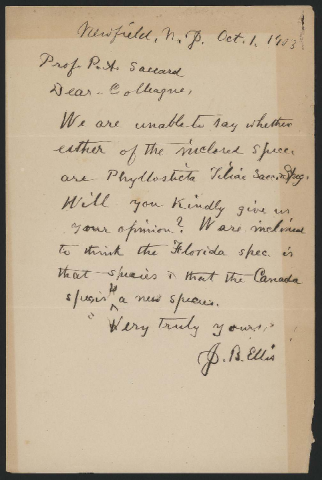 Newfield, N. J. Oct. 1, 1903
Prof. P. A. Saccard
Dear Colleague,
We are unable to say whether
either of the inclosed spec.
are Phyllosticta Tiliae Sacc. & Speg.
Will you kindly give us
your opinion? We are inclined
to think the Florida spec. is
that species & that the Canada
specis is a new species.
Very truly yours,
J. B. Ellis